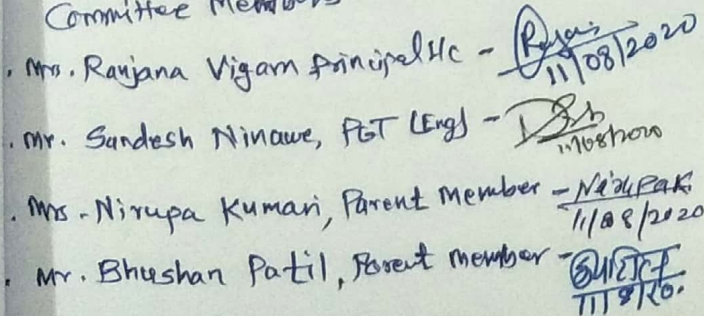 Committee Members
. Mrs. Ranjana Vigam Principal I/c - 11/08/2020
. Mr. Sandesh Ninawe, PGT (Eng) - 11/08/2020
. Mrs. Nirupa Kumari, Parent Member - Nirupak 11/08/2020
. Mr. Bhushan Patil, Parent member - 11/8/20.